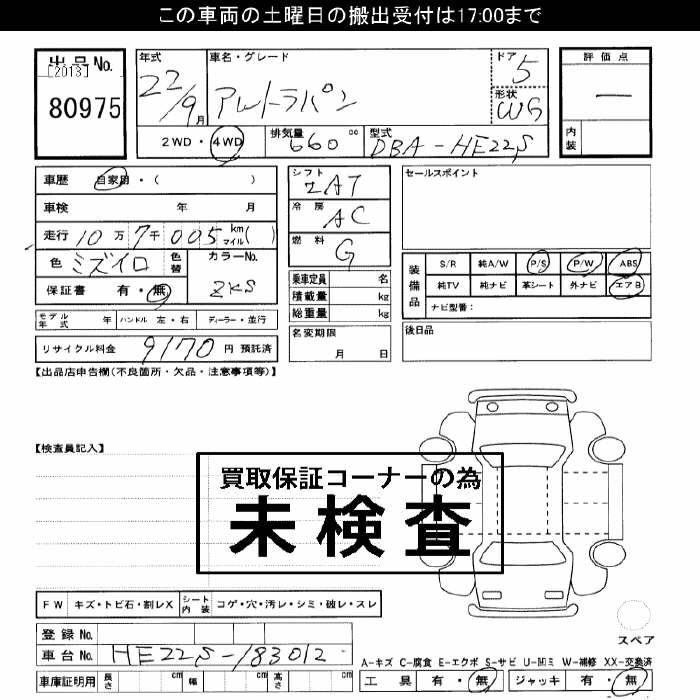 この車両の土曜日の搬出受付は17:00まで
出品No.
[2013]
80975
年式
22/9月
車名・グレード
アルトラパン
ドア
5
形状
WG
評価点
―
内装
2WD・4WD
排気量
660cc
型式
DBA-HE22S
車歴 自家用・( )
車検 年 月
走行 10万7千005km マイル( )
色 ミズイロ 色替
カラーNo.
ZKS
保証書 有・無
モデル年式 年 ハンドル 左・右 ディーラー・並行
リサイクル料金 9170円 預託済
シフト
2AT
冷房
AC
燃料
G
乗車定員 名
積載量 kg
総重量 kg
名変期限
月 日
セールスポイント
装備品
S/R 純A/W P/S P/W ABS
純TV 純ナビ 革シート 外ナビ エアB
ナビ型番:
後日品
【出品店申告欄(不良箇所・欠品・注意事項等)】
【検査員記入】
買取保証コーナーの為
未検査
FW キズ・トビ石・割レX シート内装 コゲ・穴・汚レ・シミ・破レ・スレ
登録No.
車台No. HE22S-183012
車庫証明用 長さ cm 幅 cm 高さ cm
スペア
A-キズ C-腐食 E-エクボ S-サビ U-凹ミ W-補修 XX-交換済
工具 有・無 ジャッキ 有・無